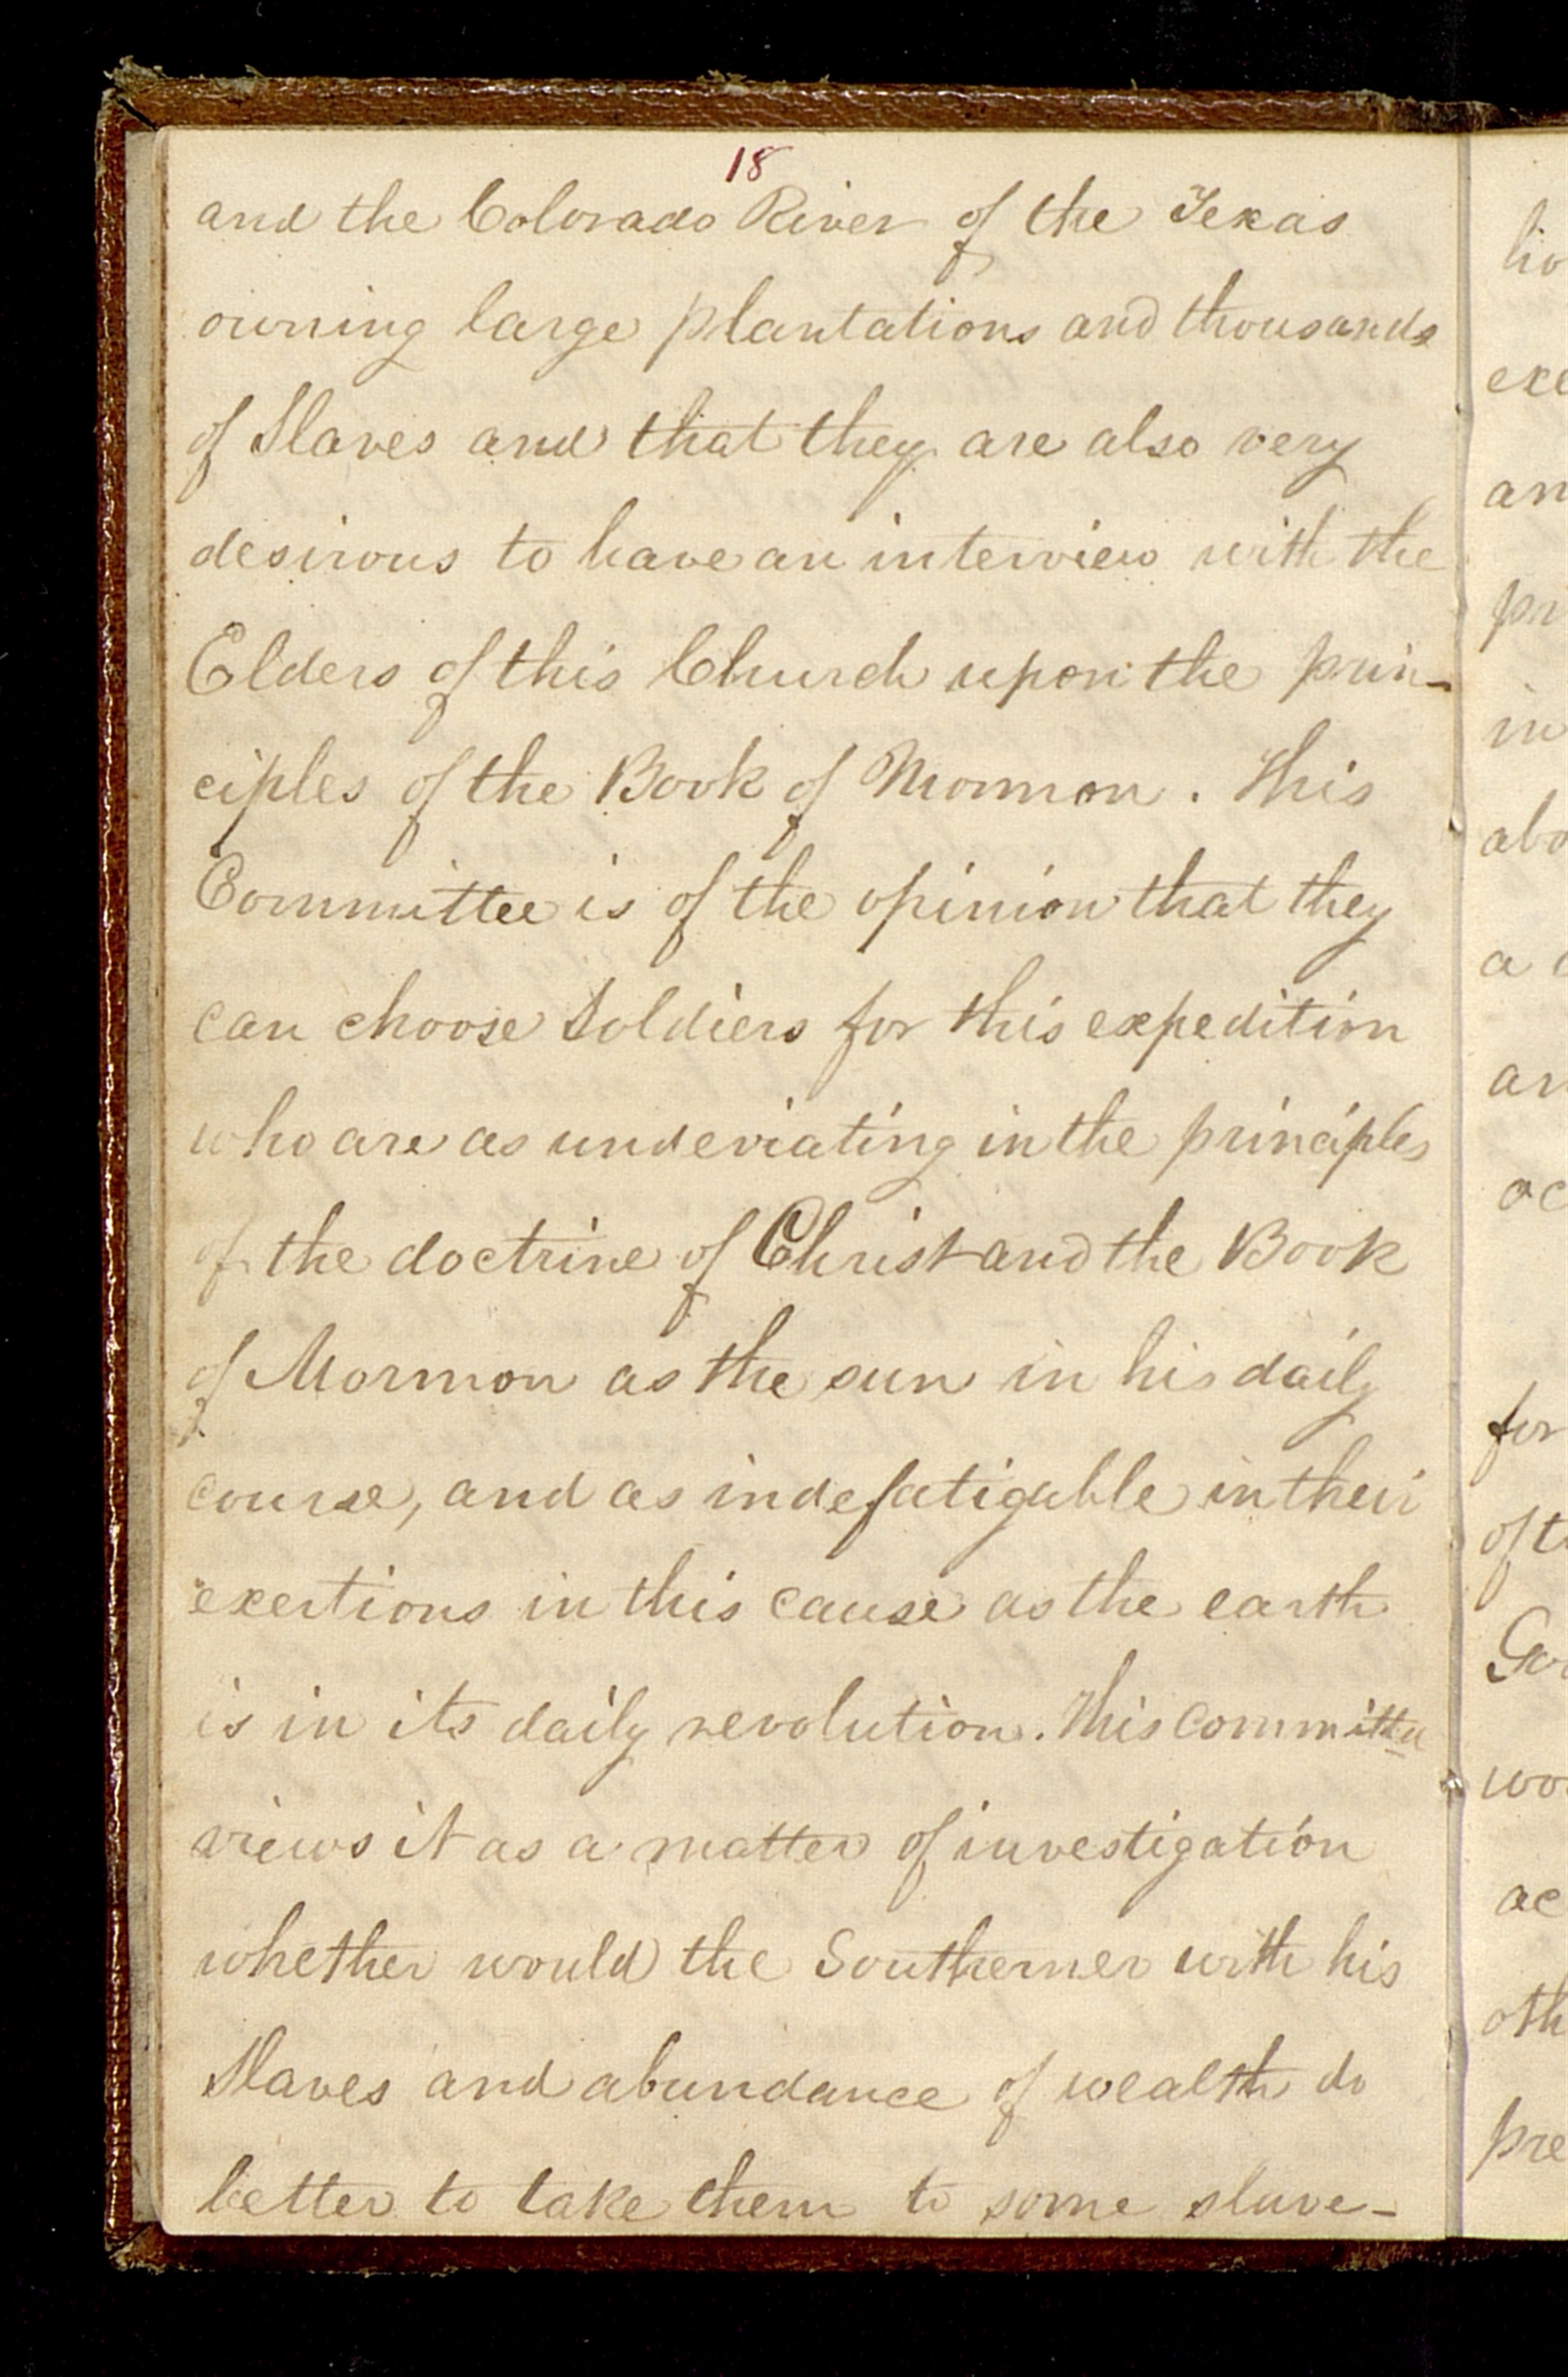 18
and the Colorado River of the Texas
owning large plantations and thousands
of Slaves and that they are also very
desirous to have an interview with the
Elders of this Church upon the prin-
ciples of the Book of Mormon. This
Committee is of the opinion that they
can choose Soldiers for this expedition
who are as undeviating in the principles
of the doctrine of Christ and the Book
of Mormon as the sun in his daily
course, and as indefatigable in their
exertions in this cause as the earth
is in its daily revolution. This committee
views it as a matter of investigation
whether would the Southerner with his
Slaves and abundance of wealth do
better to take them to some slave-